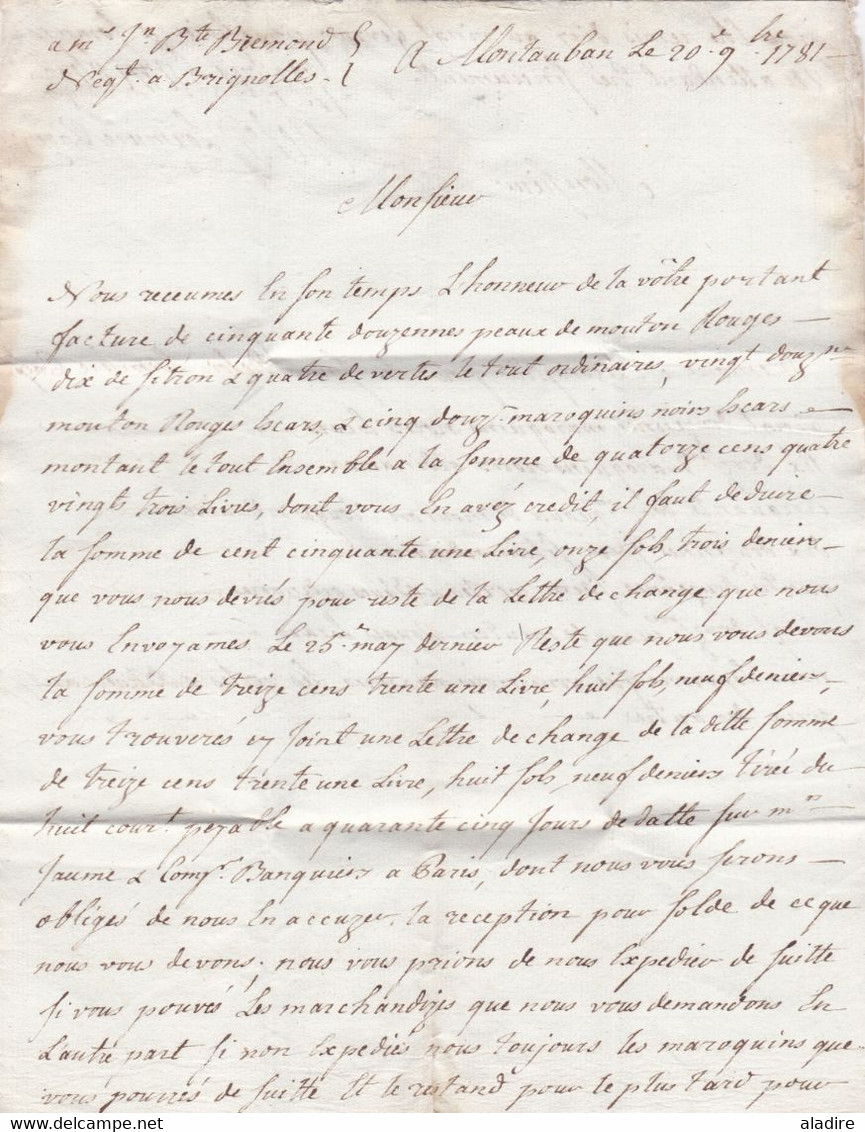 a mr. Jn. Bte Bremond
Negt. a Brignolles
A Montauban Le 20e. 9bre 1781
Monsieur
Nous receumes En son temps L'honneur de la vôtre portant
facture de cinquante douzennes peaux de mouton Rouges
dix de Sitron & quatre de vertes le tout ordinaires, vingt douzne
mouton Rouges Escars, & cinq douz. maroquins noirs Escars
montant le tout Ensemble a la somme de quatorze cens quatre
vingts trois Livres, dont vous En avéz credit, il faut deduire
la somme de cent cinquante une Livre, onze sols, trois deniers
que vous nous deviés pour reste de la Lettre de change que nous
vous Envoyames Le 25e. may dernier Reste que nous vous devons
la somme de treize cens trente une Livre, huit sols, neuf deniers,
vous trouverés cy Joint une Lettre de change de la ditte somme
de treize cens trente une Livre, huit sols, neuf deniers tirée du
huit court. payable a quarante cinq Jours de datte sur mrs
Jaume & Compe. Banquiers a Paris, dont nous vous serons
obligés de nous En accuzer la reception pour solde de ce que
nous vous devons; nous vous prions de nous Expedier de suitte
si vous pouvés Les marchandizes que nous vous demandons En
L'autre part si non Expediés nous toujours les maroquins que
vous pourrés de suitte Et le restand pour le plus tard pour
www.delcampe.net
aladire